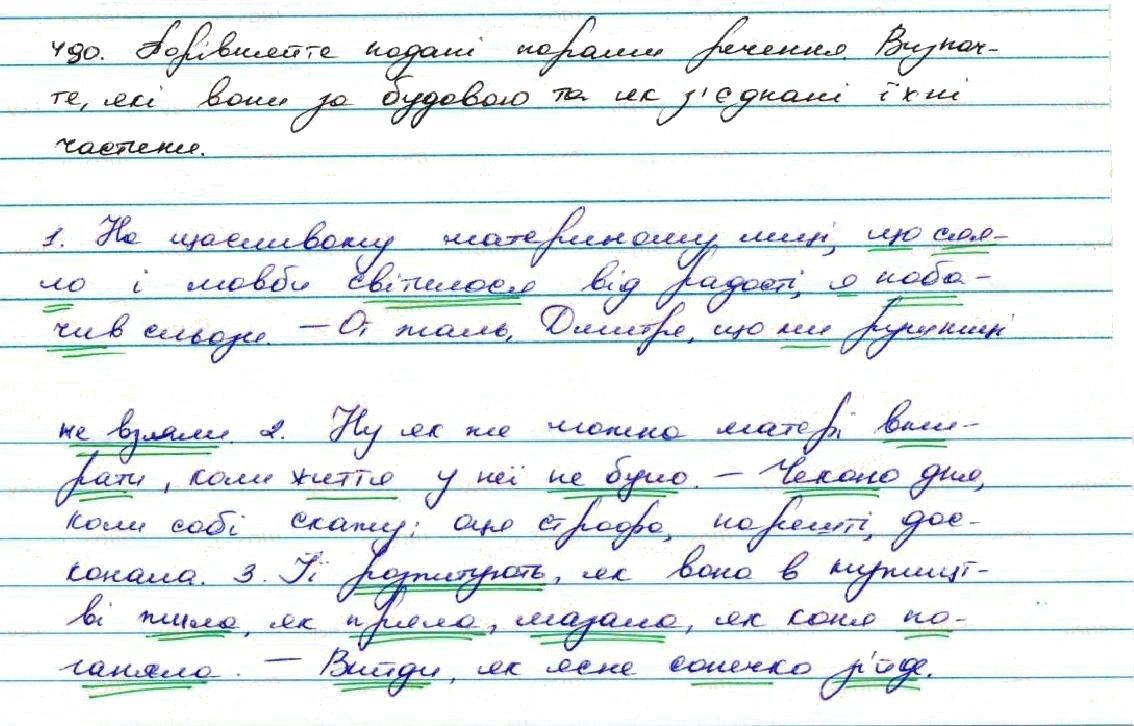 490. Порівняйте подані парами речення. Визнач-
те, які вони за будовою та як з'єднані їхні
частини.
1. На щасливому материному лиці, що сяя-
ло і мовби світилося від радості, я поба-
чив сльози. — От жаль, Дмитре, що ми рушниці
не взяли. 2. Ну як же можна матері вми-
рати, коли життя у неї не було. — Чекаю дня,
коли собі скажу: оця строфа, нарешті, дос-
конала. 3. Її розпитують, як вона в кріпацт-
ві жила, як пряла, мазала, як коня по-
ганяла. — Вийди, як ясне сонечко зійде.